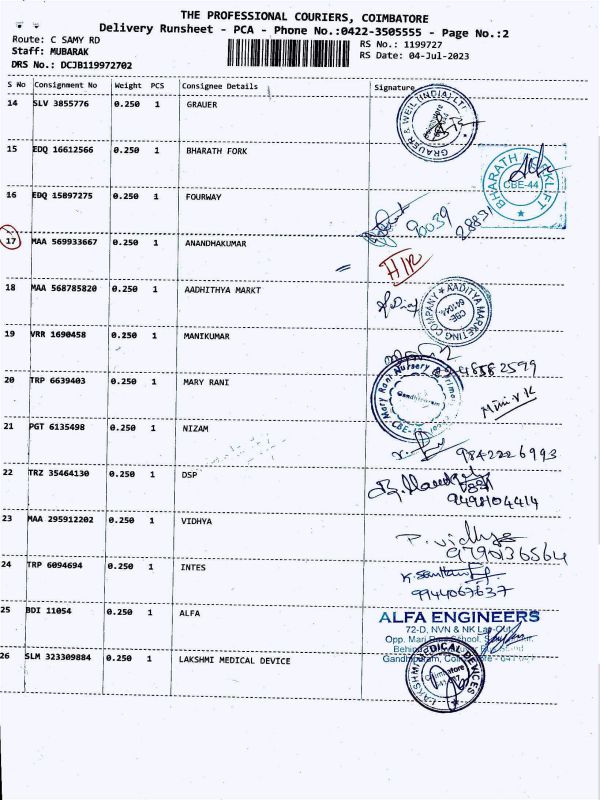 THE PROFESSIONAL COURIERS, COIMBATORE
Delivery Runsheet - PCA - Phone No.:0422-3505555 - Page No.:2
Route: C SAMY RD
RS No.: 1199727
Staff: MUBARAK
RS Date: 04-Jul-2023
DRS No.: DCJB119972702
S No Consignment No Weight PCS Consignee Details Signature
14 SLV 3855776 0.250 1 GRAUER
GRAUER & WEIL (INDIA) LT
15 EDQ 16612566 0.250 1 BHARATH FORK
BHARATH
CBE-44
16 EDQ 15897275 0.250 1 FOURWAY
90039
28831
17 MAA 569933667 0.250 1 ANANDHAKUMAR
18 MAA 568785820 0.250 1 AADHITHYA MARKT
AADITYA MARKETING COMPANY
CBE
641044
19 VRR 1690458 0.250 1 MANIKUMAR
20 TRP 6639403 0.250 1 MARY RANI
Mary Rani Nursery & Primary
21 PGT 6135498 0.250 1 NIZAM
9842226993
22 TRZ 35464130 0.250 1 DSP
9498104414
23 MAA 295912202 0.250 1 VIDHYA
P. Vidhya
9790136564
24 TRP 6094694 0.250 1 INTES
9944067637
25 BDI 11054 0.250 1 ALFA
ALFA ENGINEERS
72-D, NVN & NK Lay-Out,
26 SLM 323309884 0.250 1 LAKSHMI MEDICAL DEVICE
LAKSHMI MEDICAL DEVICES
Coimbatore